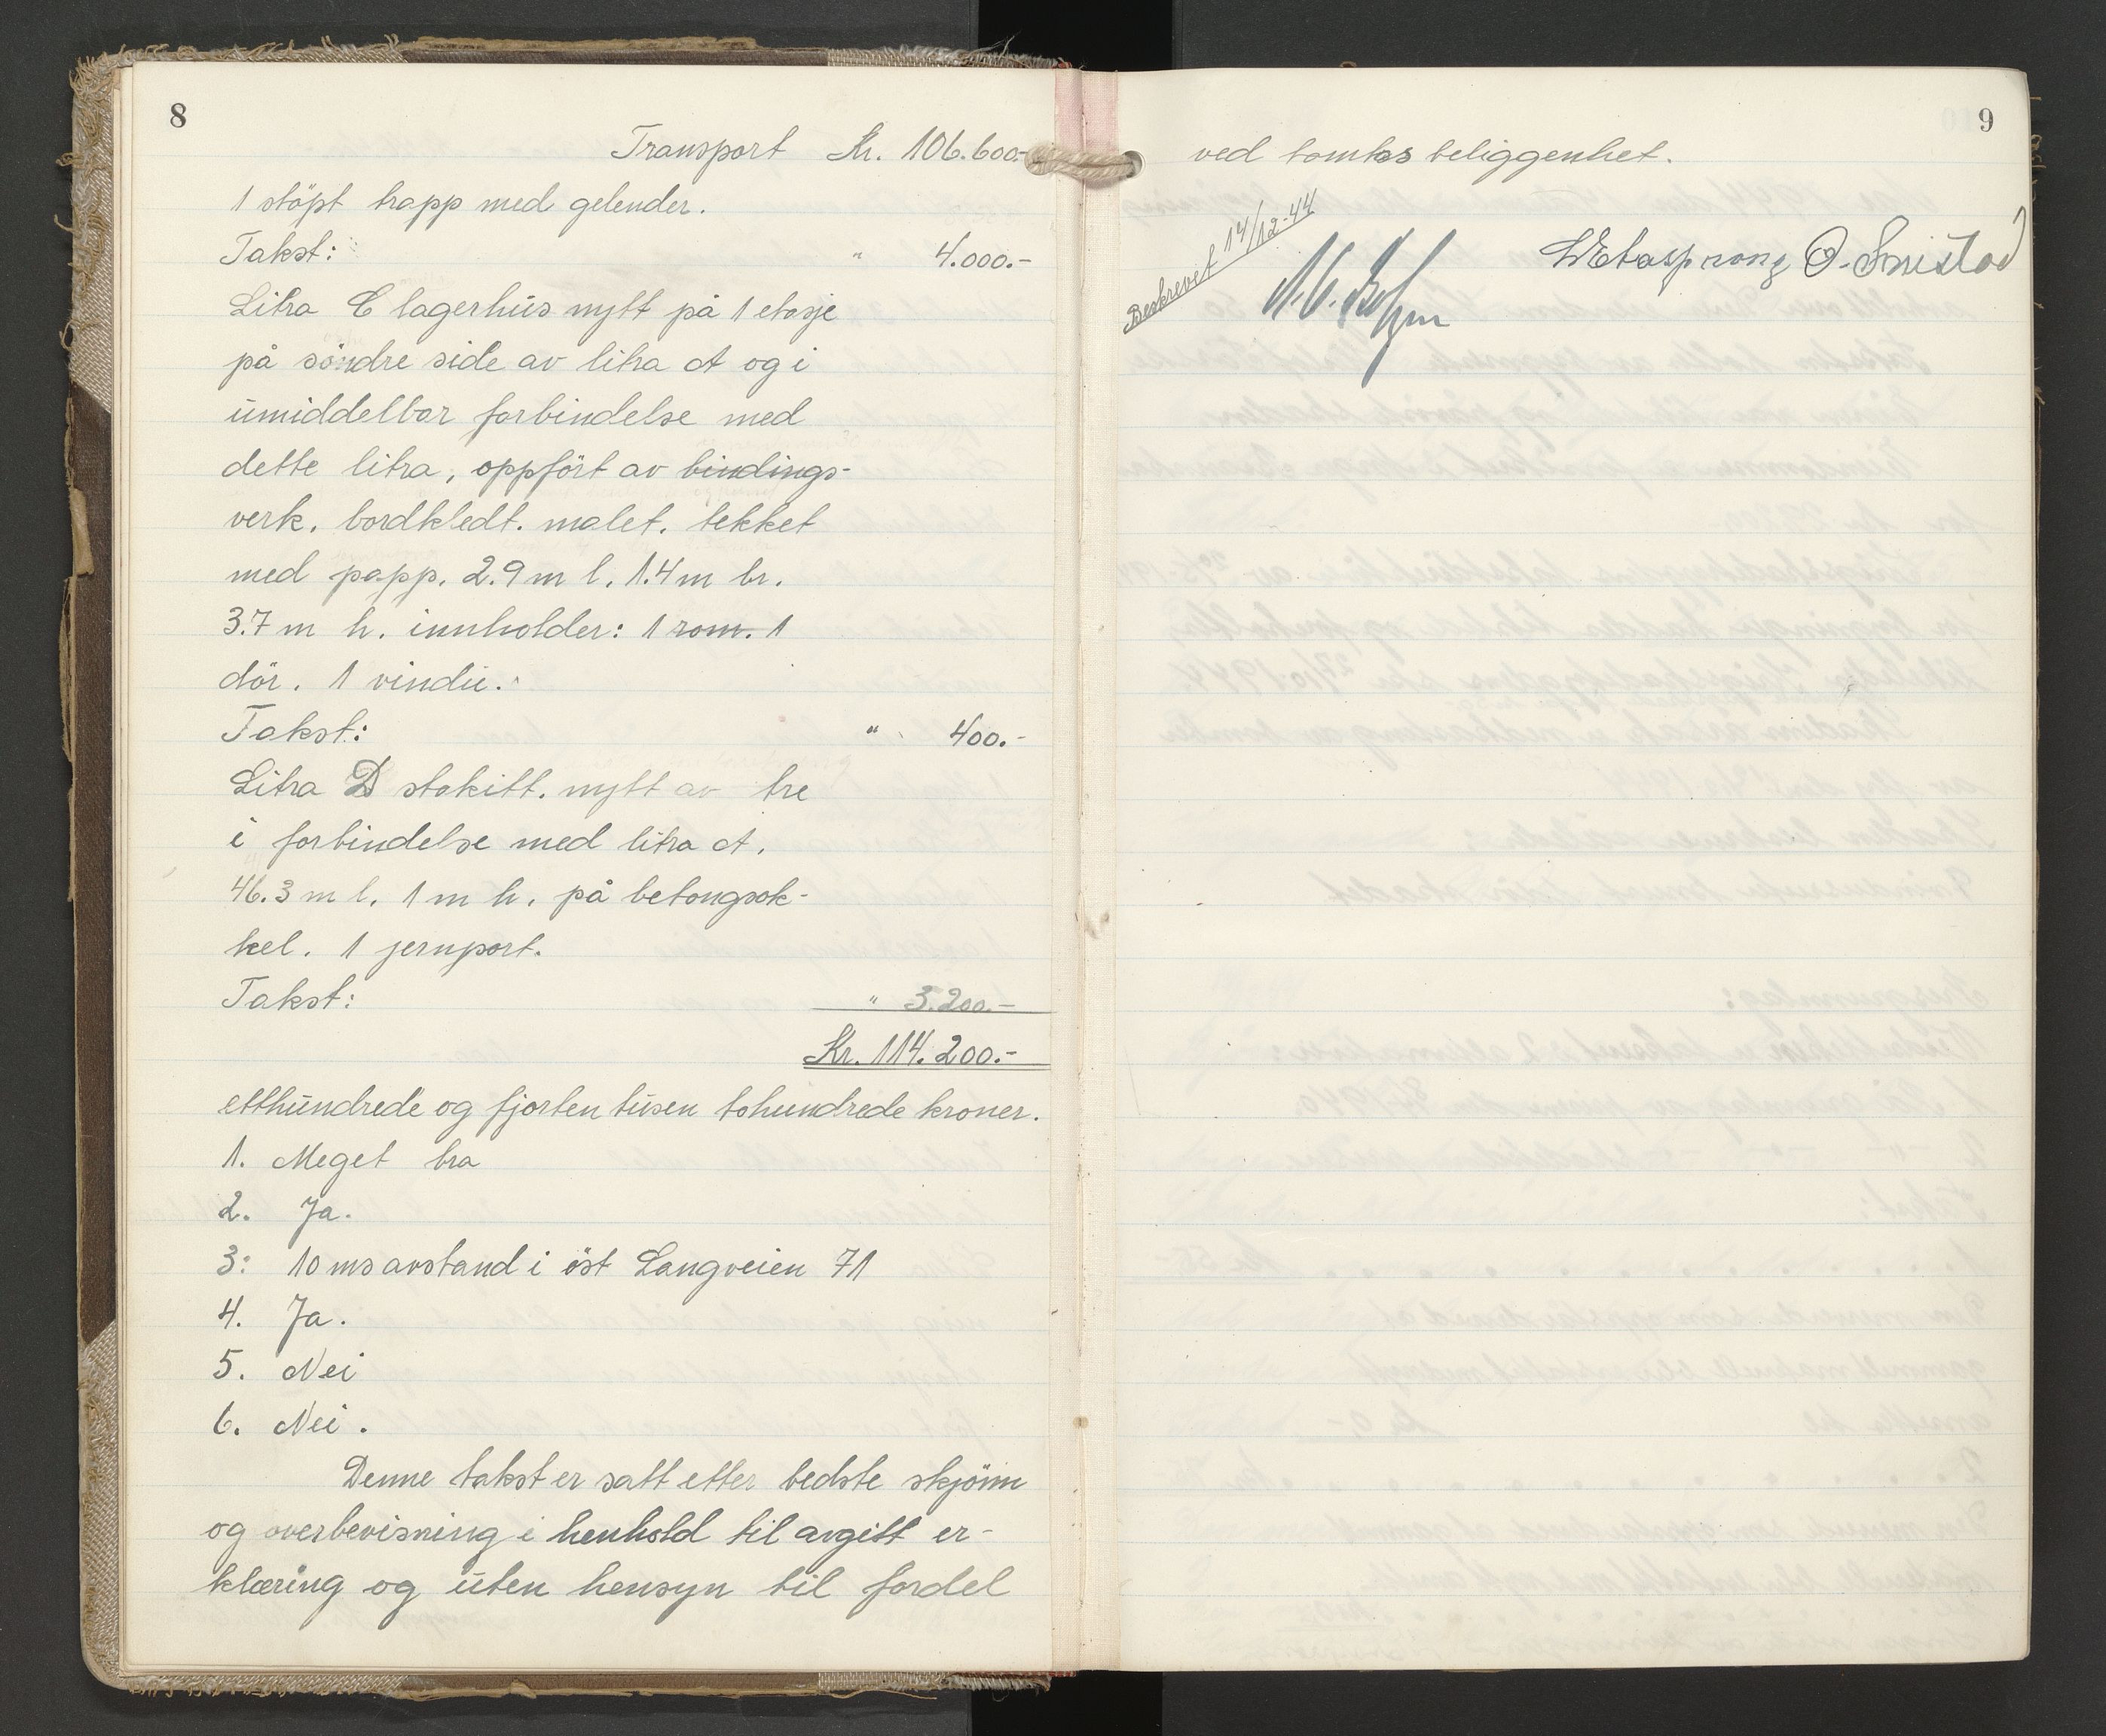 8
Transport Kr. 106.600.-
1 stöpt trapp med gelender.
Takst: " 4.000.-
Litra C lagerhus nytt på 1 etasje
på söndre side av litra A og i
umiddelbar forbindelse med
dette litra, oppfört av bindings-
verk. bordkledt. malet. tekket
med papp. 2.9 m l. 1.4 m br.
3.7 m h. innholder: 1 rom. 1
dör. 1 vindu.
Takst: " 400.-
Litra D stakitt. nytt av tre
i forbindelse med litra A.
46.3 m l. 1 m h. på betongsok-
kel. 1 jernport.
Takst: " 3.200.-
Kr. 114.200.-
etthundrede og fjorten tusen tohundrede kroner.
1. Meget bra
2. Ja.
3: 10 ms avstand i öst Langveien 71
4. Ja.
5. Nei
6. Nei.
Denne takst er satt etter bedste skjönn
og overbevisning i henhold til avgitt er-
klæring og uten hensyn til fordel
9
ved tomtes beliggenhet.
Beskrevet 14/12-44
O. Smistad